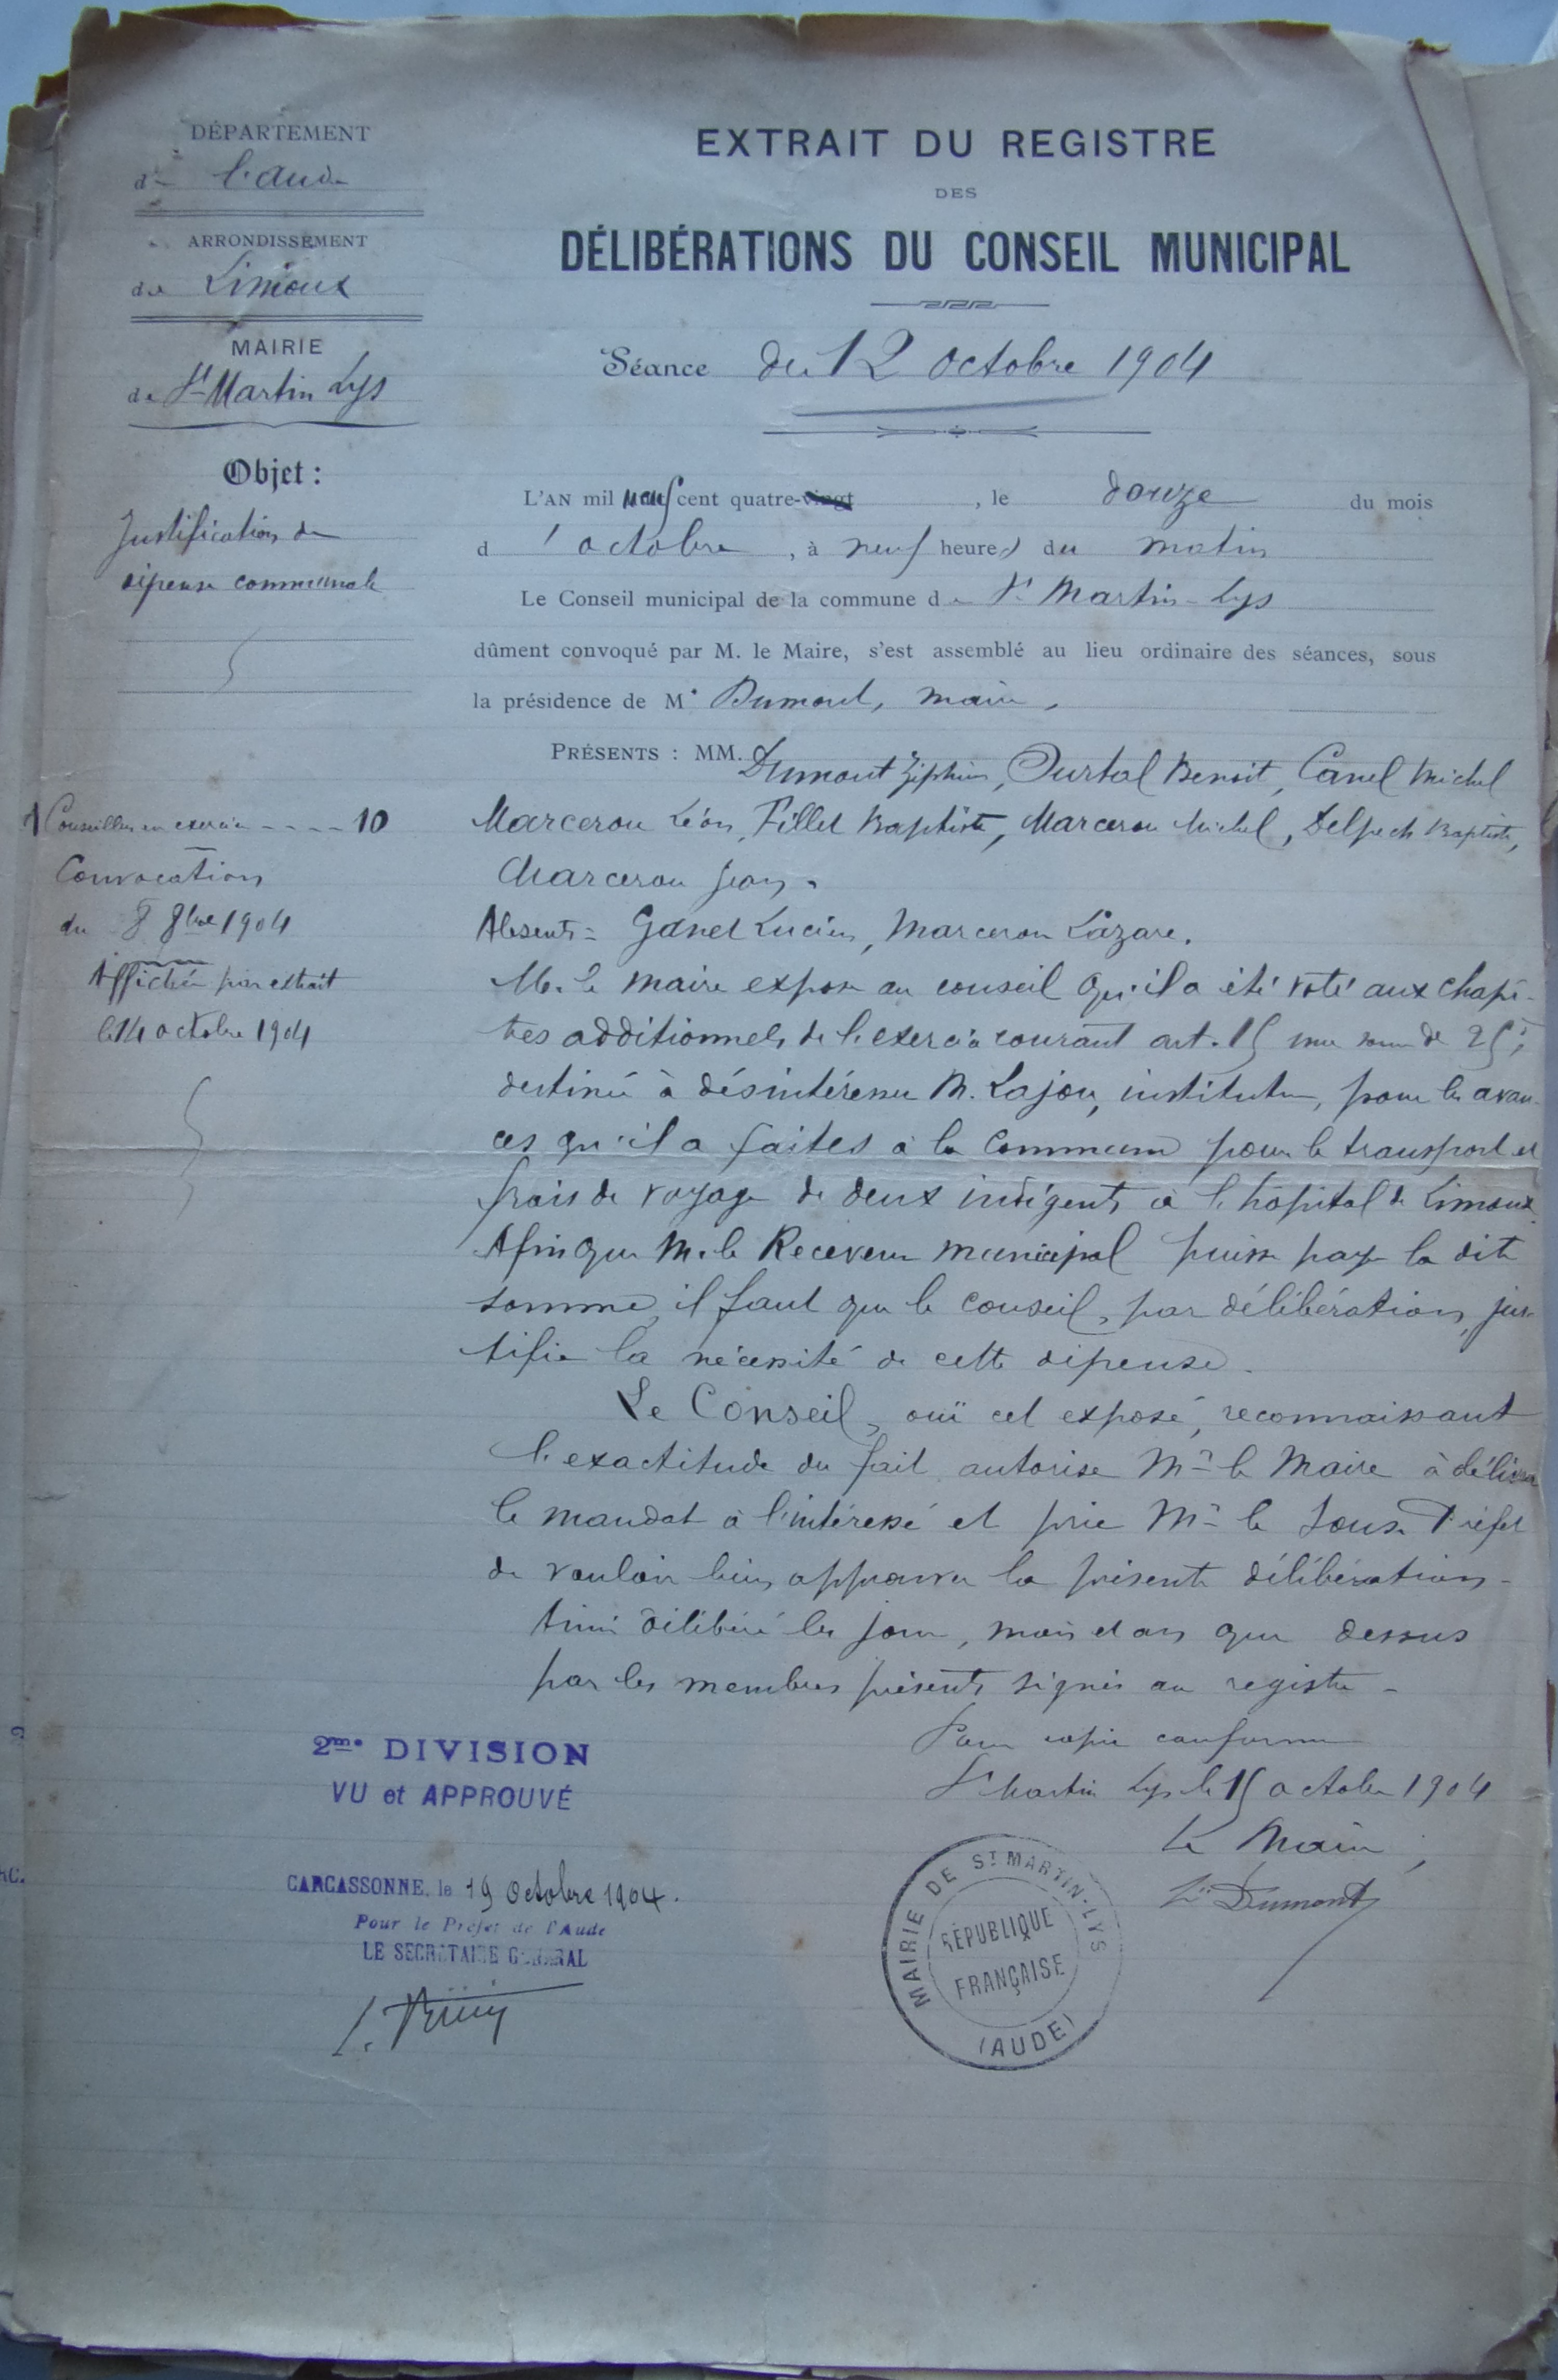 DÉPARTEMENT
de l'Aude
ARRONDISSEMENT
de Limoux
MAIRIE
de St Martin Lys
Objet :
Justification de
dépense communale
Conseillers en exercice ---- 10
Convocation
du 8 8bre 1904
Affichée par extrait
le 14 octobre 1904
EXTRAIT DU REGISTRE
DES
DÉLIBÉRATIONS DU CONSEIL MUNICIPAL
Séance du 12 octobre 1904
L'AN mil neuf cent quatre-vingt , le douze du mois
d'octobre , à neuf heures du matin
Le Conseil municipal de la commune de St Martin-Lys
dûment convoqué par M. le Maire, s'est assemblé au lieu ordinaire des séances, sous
la présidence de Mr Dumont, maire,
PRÉSENTS : MM. Dumont Zéphirin, Ourtal Benoit, Canel Michel
Marcerou Léon, Fillet Baptiste, Marcerou Michel, Delpech Baptiste,
Marcerou Jean.
Absents = Lucien, Marcerou Lazare.
M. le maire expose au conseil qu'il a été voté aux chapi-
tres additionnels de l'exercice courant art. 15 une somme de 25f
destinée à désintéresser M. Lajou, instituteur, pour les avan-
ces qu'il a faites à la commune pour le transport et
frais de voyage de deux indigents à l'hôpital de Limoux.
Afin que M. le Receveur municipal puisse payer la dite
somme, il faut que le conseil, par délibération, jus-
tifie la nécessité de cette dépense.
Le Conseil, ouï cet exposé, reconnaissant
l'exactitude du fait autorise Mr le Maire à délivrer
le mandat à l'intéressé et prie Mr le Sous-Préfet
de vouloir bien approuver la présente délibération-
Ainsi délibéré les jour, mois et an que dessus
par les membres présents signés au registre -
Pour copie conforme
St Martin Lys le 15 octobre 1904
Le Maire,
Zin Dumont
2me DIVISION
VU et APPROUVÉ
CARCASSONNE, le 19 Octobre 1904.
Pour le Préfet de l'Aude
LE SECRÉTAIRE GÉNÉRAL
MAIRIE DE ST MARTIN-LYS
RÉPUBLIQUE
FRANÇAISE
(AUDE)